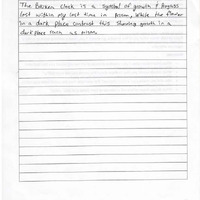 The Broken clock is a symbol of growth & progress
lost within my lost time in prison, while the flower
in a dark place contrast this showing growth in a
dark place such as prison.